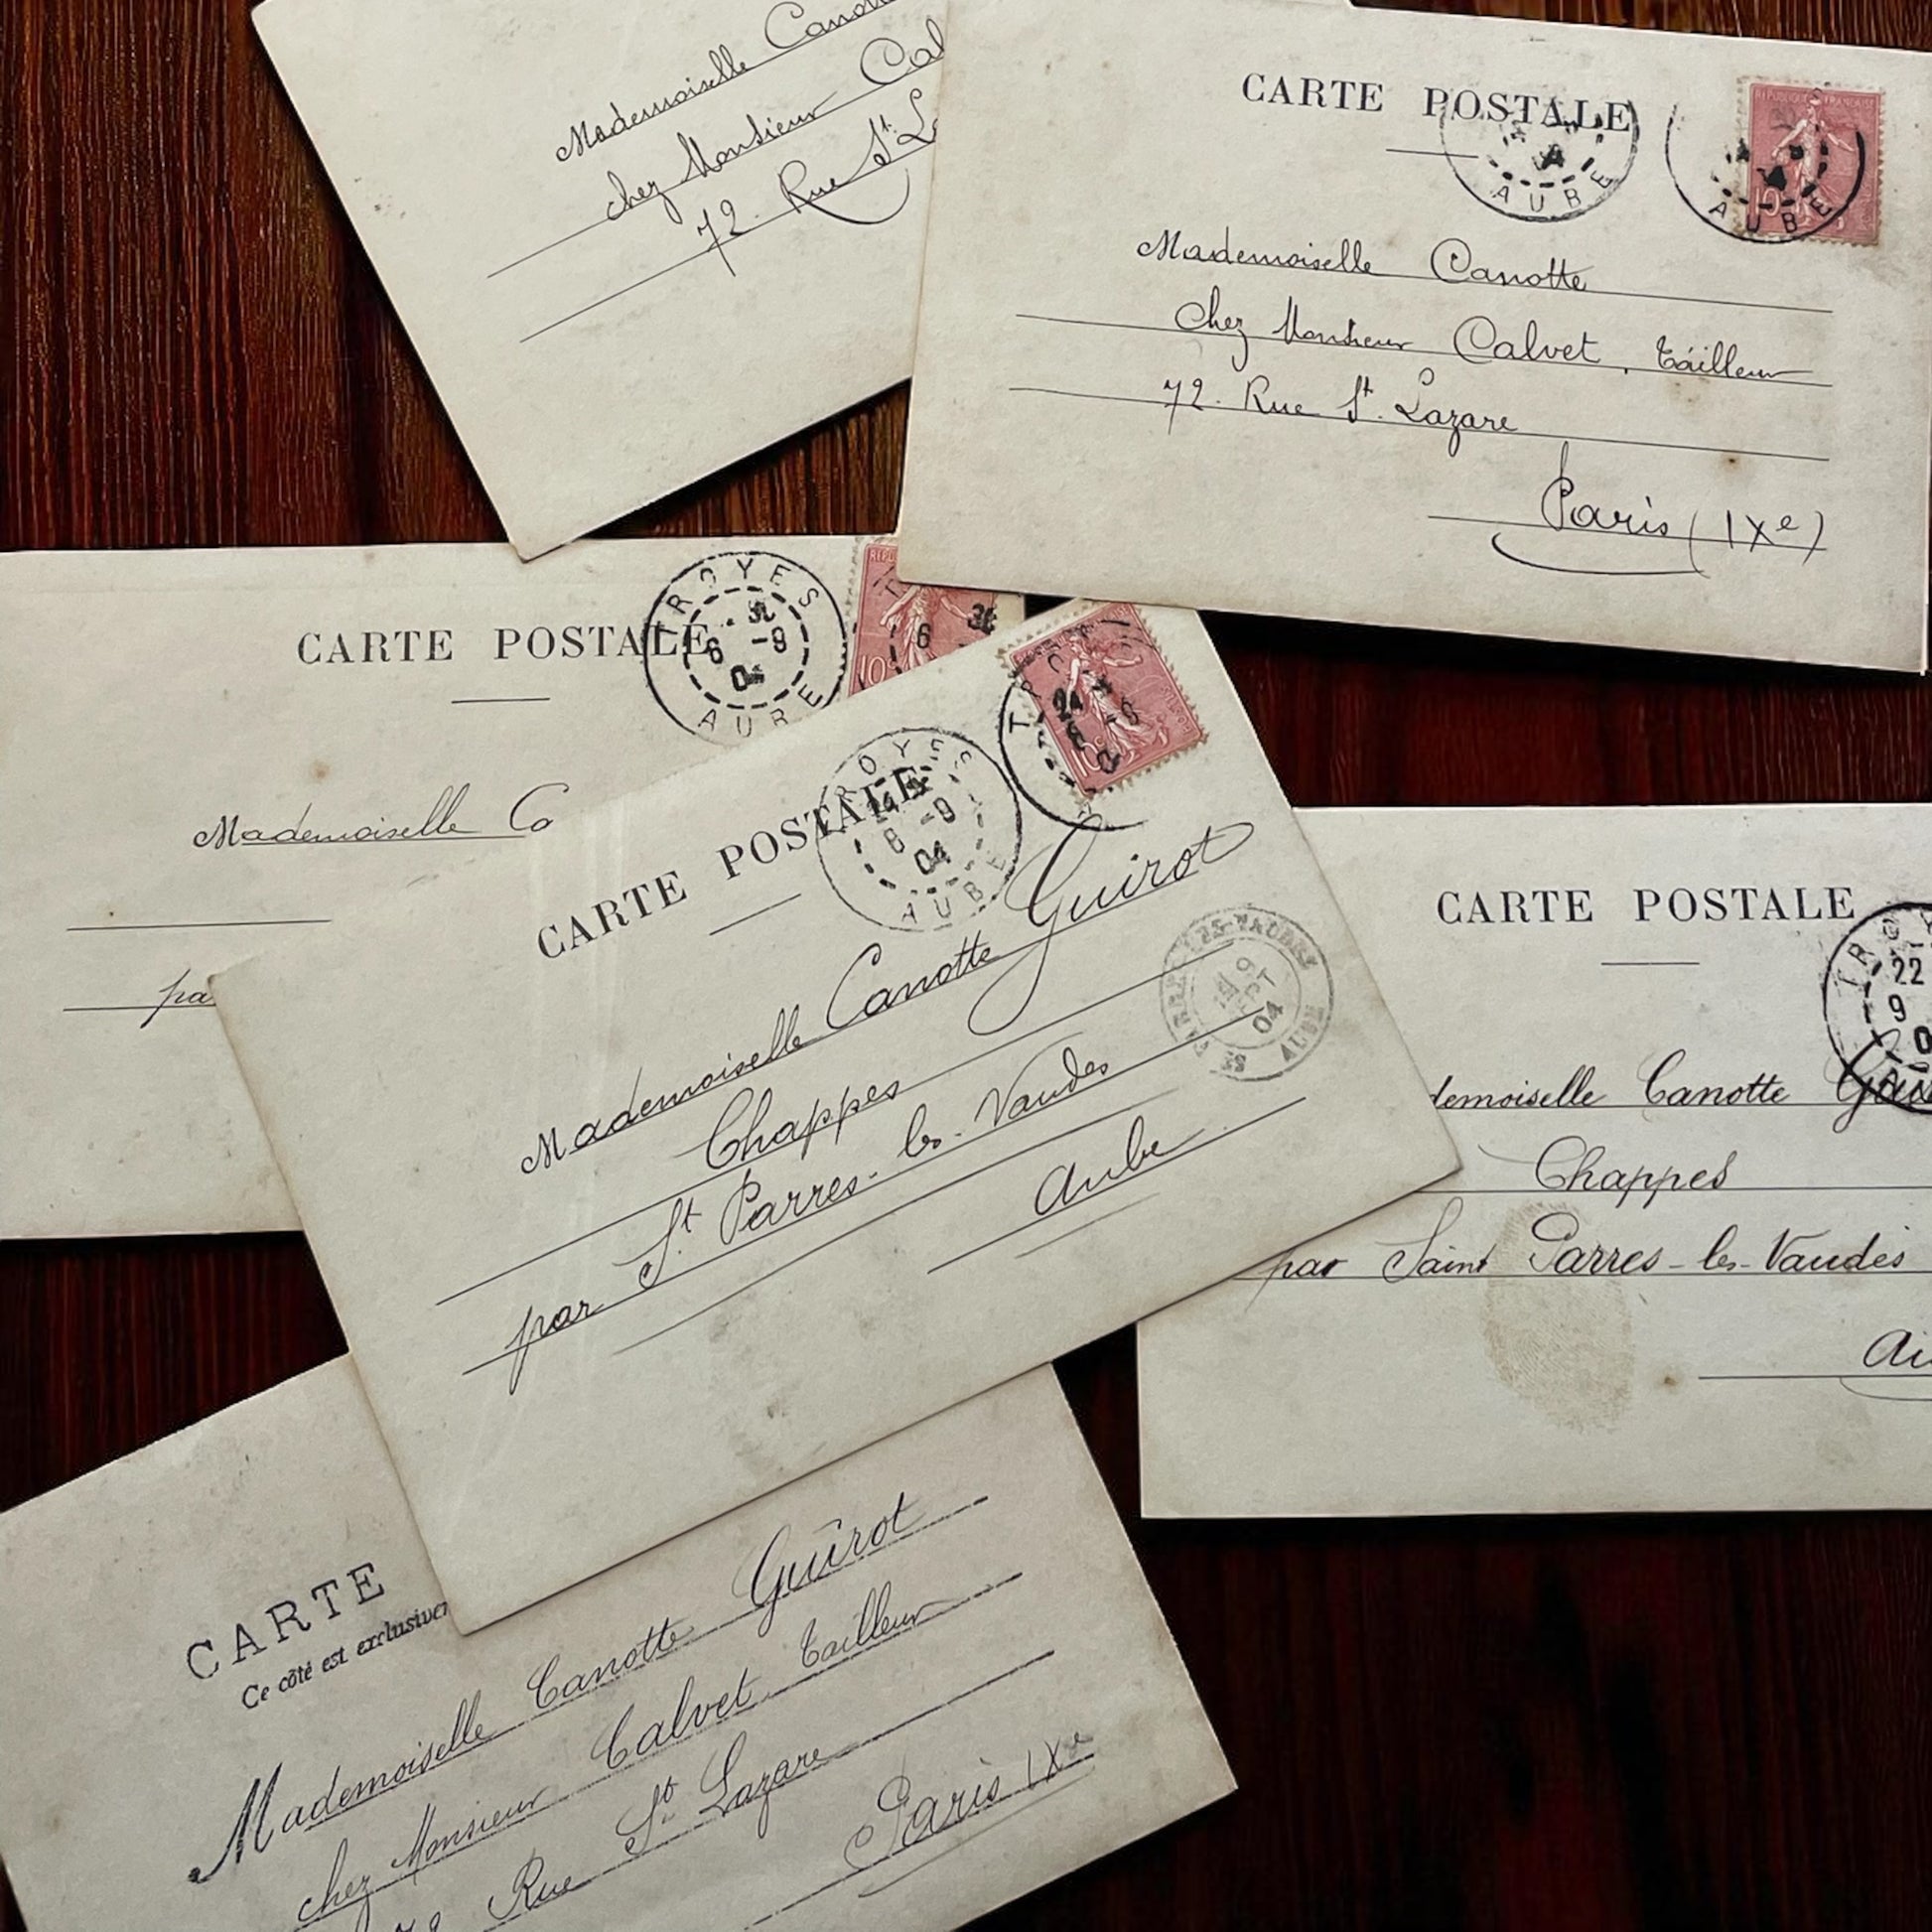 Mademoiselle
chez Monsieur
72. Rue St.
CARTE POSTALE
AUBE
AUBE
Mademoiselle Canotte
chez Monsieur Calvet, Tailleur
72. Rue St. Lazare
Paris (IXe)
CARTE POSTALE
TROYES
6 -9
04
AUBE
10c
6
Mademoiselle
CARTE POSTALE
TROYES
6 -9
04
AUBE
10c
Mademoiselle Canotte Guirot
Chappes
par St. Parres-les-Vaudes
Aube
ST PARRES-LES-VAUDES
9
SEPT
04
AUBE
CARTE POSTALE
22
9
Canotte
Chappes
par Saint Parres-les-Vaudes
CARTE
Ce côté est
Mademoiselle Canotte Guirot
chez Monsieur Calvet Tailleur
Rue St. Lazare
Paris IXe